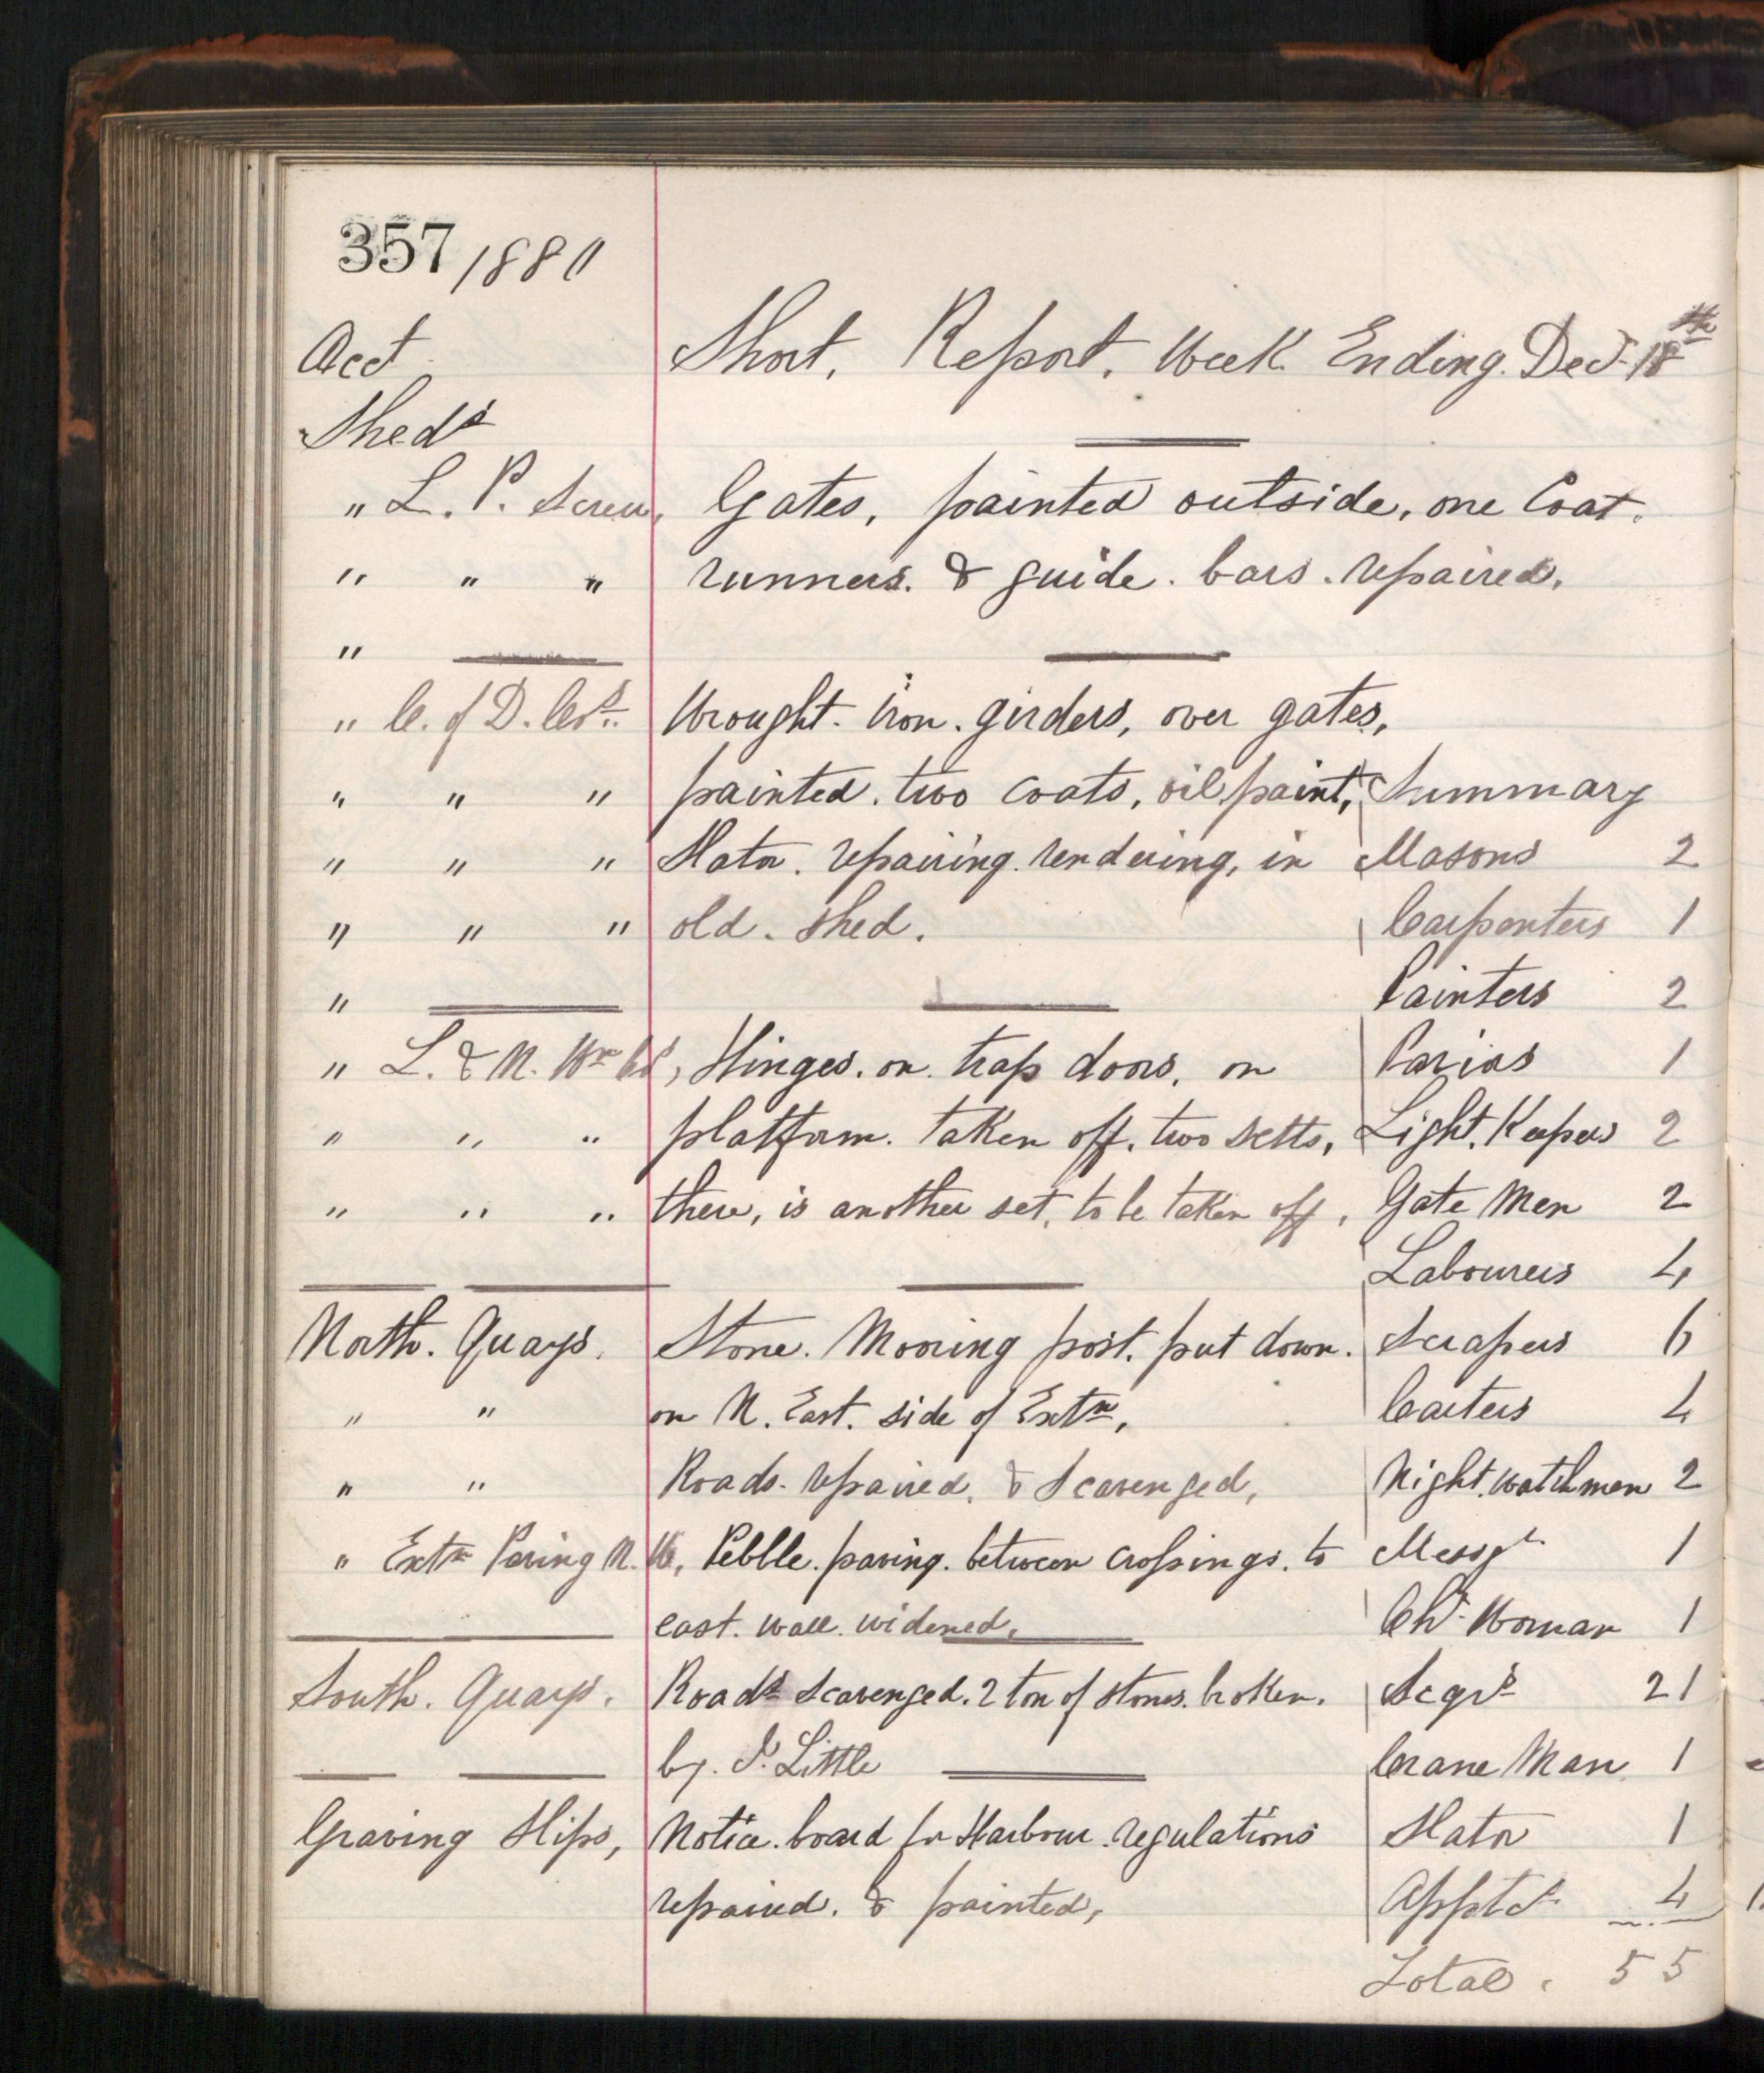 357 1880
Acct Short. Report. Week Ending. Dec. 18th
Sheds
" L. P. Screw, Gates, painted outside, one Coat.
" " " runners. & guide. bars. repaired.
"
" C. of D. Cos. Wrought. iron. girders, over gates,
" " " painted. two coats, oil paint, Summary
" " " Slatr. repairing. rendering, in Masons 2
" " " old. shed. Carpenters 1
" Painters 2
" L. & N. Wn Co, Hinges. on. trap doors. on Paviors 1
" " " platform. taken off. two setts, Light. Keepers 2
" " " there, is another set, to be taken off, Gate Men 2
Labourers 4
North. Quays. Stone. Mooring post. put down. Scrapers 6
" " on N. East. side of Extn, Carters 4
" " Roads. repaired. & Scavenged, Night. Watchmen 2
" Extn Paving N. W, Pebble. paving. between crossings. to Messgr 1
east. wall. widened. Chr Woman 1
South. Quays. Roads Scavenged. 2 ton of stones. broken. Scgrs 21
by. J. Little Crane Man 1
Graving Slips, Notice. board for Harbour. regulations Slatr 1
repaired. & painted, Apptcs 4
Total. 55